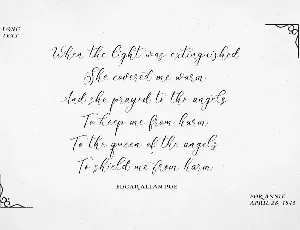 LONG
TEXT
When the light was extinguished
She covered me warm
And she prayed to the angels
To keep me from harm
To the queen of the angels
To shield me from harm
EDGAR ALLAN POE
FOR ANNIE
APRIL 28, 1849